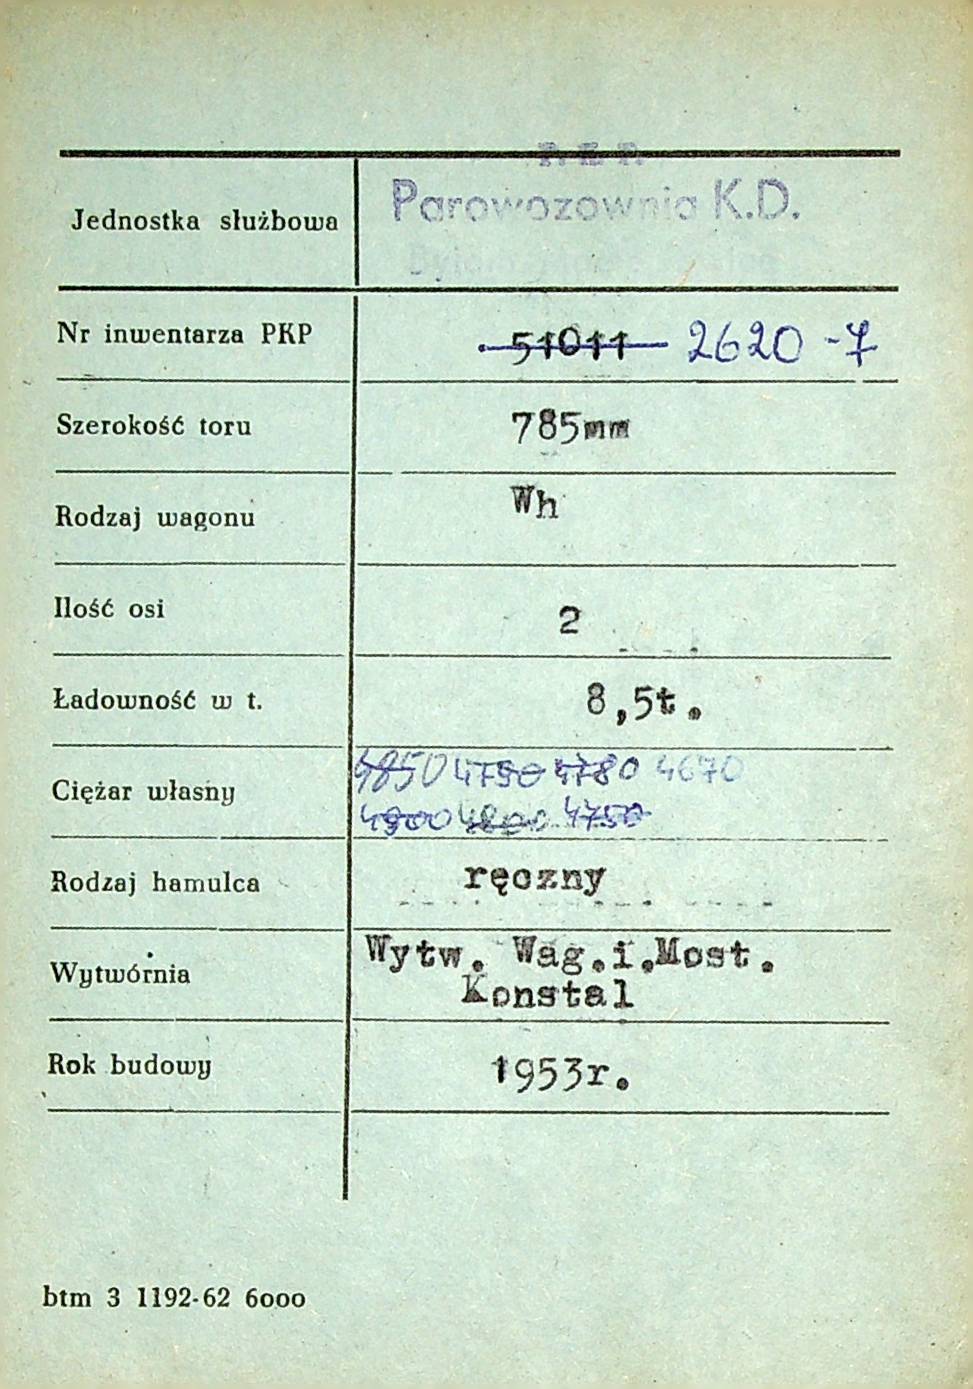 P. K. P.
Jednostka służbowa Parowozownia K.D.
Nr inwentarza PKP 51011 2620 -7
Szerokość toru 785mm
Rodzaj wagonu Wh
Ilość osi 2
Ładowność w t. 8,5t.
Ciężar własny 4850 4790 4780 4670
4900 4800 4750
Rodzaj hamulca ręczny
Wytwórnia Wytw. Wag.i.Most.
Konstal
Rok budowy 1953r.
btm 3 1192-62 6000